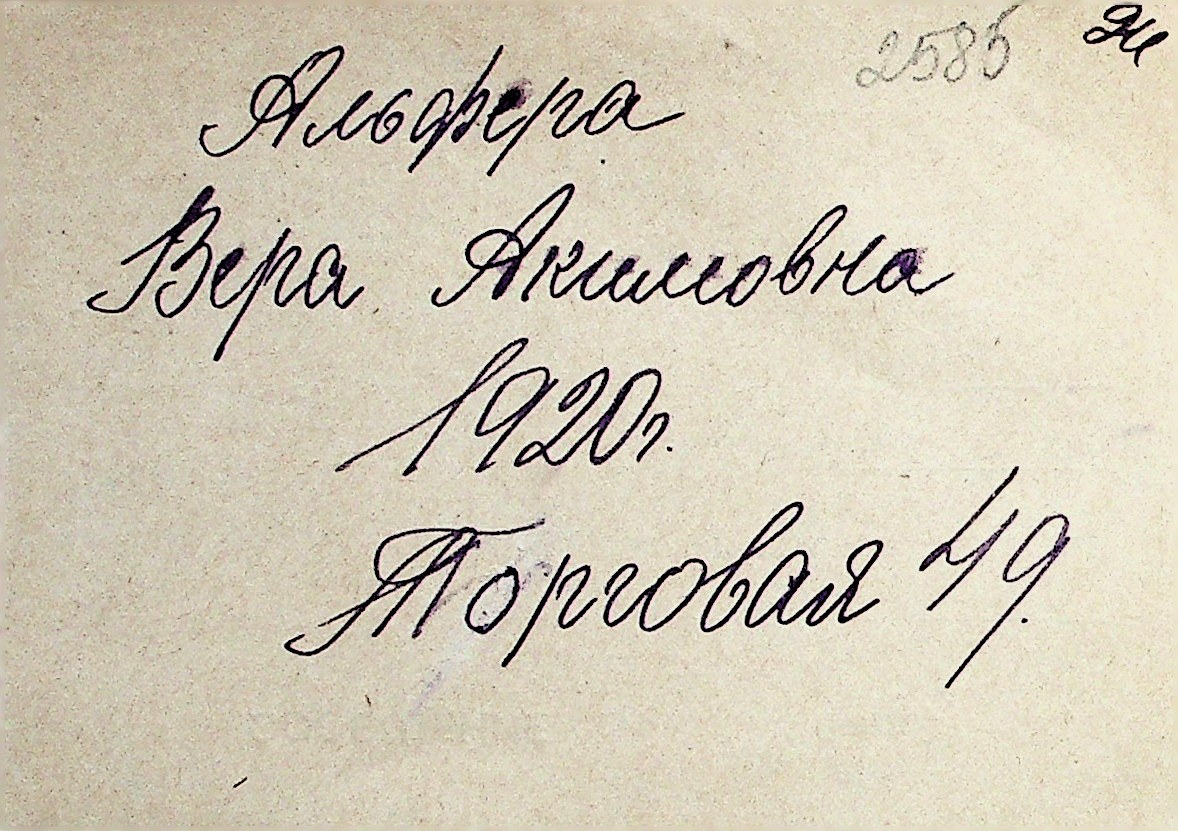 2585
Альфера
Вера Акимовна
1920г.
Торговая 49.